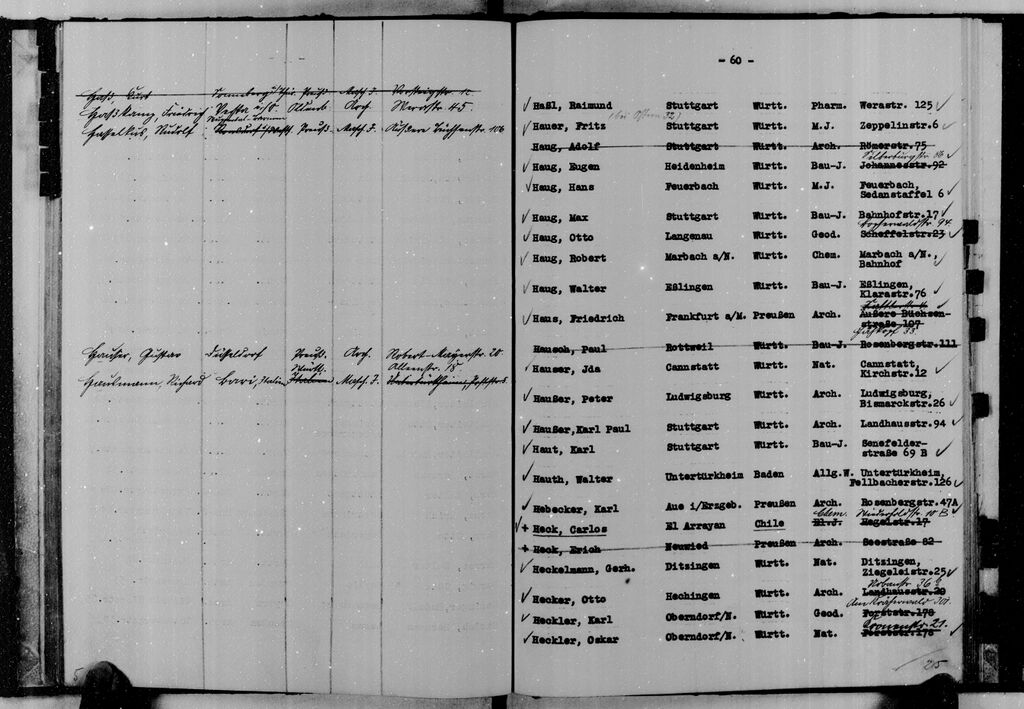 Haß, Kurt Sonneberg i/Thür. Preuß. Masch. I.
Haßkamp, Friedrich Arch. 45.
Hasselkus, Rudolf Preuß. Masch. I. Äußere 106
Hauser, Gustav Düsseldorf Preuß. Arch. Robert-Mayerstr. 20
Württ.
Haußmann, Richard Bari, Italien Italien Masch. I.
5
- 60 -
✓ Haßl, Raimund Stuttgart Württ. Pharm. Werastr. 125 ✓
(bis Ostern 32)
✓ Hauer, Fritz Stuttgart Württ. M.J. Zeppelinstr.6 ✓
Haug, Adolf Stuttgart Württ. Arch. Römerstr.75
Silberburgstr. 86 ✓
✓ Haug, Eugen Heidenheim Württ. Bau-J. Johannesstr.92
✓ Haug, Hans Feuerbach Württ. M.J. Feuerbach,
Sedanstaffel 6 ✓
✓ Haug, Max Stuttgart Württ. Bau-J. Bahnhofstr.17 ✓
94.
✓ Haug, Otto Langenau Württ. Geod. Scheffelstr.23 ✓
✓ Haug, Robert Marbach a/N. Württ. Chem. Marbach a/N., ✓
Bahnhof
✓ Haug, Walter Eßlingen Württ. Bau-J. Eßlingen,
Klarastr.76 ✓
✓ Haus, Friedrich Frankfurt a/M. Preußen Arch. Äußere Büchsen-
straße 107
Hausch, Paul Rottweil Württ. Bau-J. Rosenbergstr.111
✓ Hauser, Jda Cannstatt Württ. Nat. Cannstatt,
Kirchstr.12 ✓
✓ Haußer, Peter Ludwigsburg Württ. Arch. Ludwigsburg,
Bismarckstr.26 ✓
✓ Haußer,Karl Paul Stuttgart Württ. Arch. Landhausstr.94 ✓
✓ Haut, Karl Stuttgart Württ. Bau-J. Senefelder-
straße 69 B ✓
✓ Hauth, Walter Untertürkheim Baden Allg.W. Untertürkheim,
Fellbacherstr.126 ✓
✓ Hebecker, Karl Aue i/Erzgeb. Preußen Arch. Rosenbergstr.47A ✓
Chem. 10 B ✓
✓ + Heck, Carlos El Arrayan Chile El.J. Hegelstr.17
+ Heck, Erich Neuwied Preußen Arch. Seestraße 82
✓ Heckelmann, Gerh. Ditzingen Württ. Nat. Ditzingen,
Ziegeleistr.25 ✓
Urbanstr. 36
✓ Hecker, Otto Hechingen Württ. Arch. Landhausstr.20
Am Kräherwald 301.
✓ Heckler, Karl Oberndorf/N. Württ. Geod. Forststr.178
Kronenstr. 21.
✓ Heckler, Oskar Oberndorf/N. Württ. Nat. Forststr.178 ✓